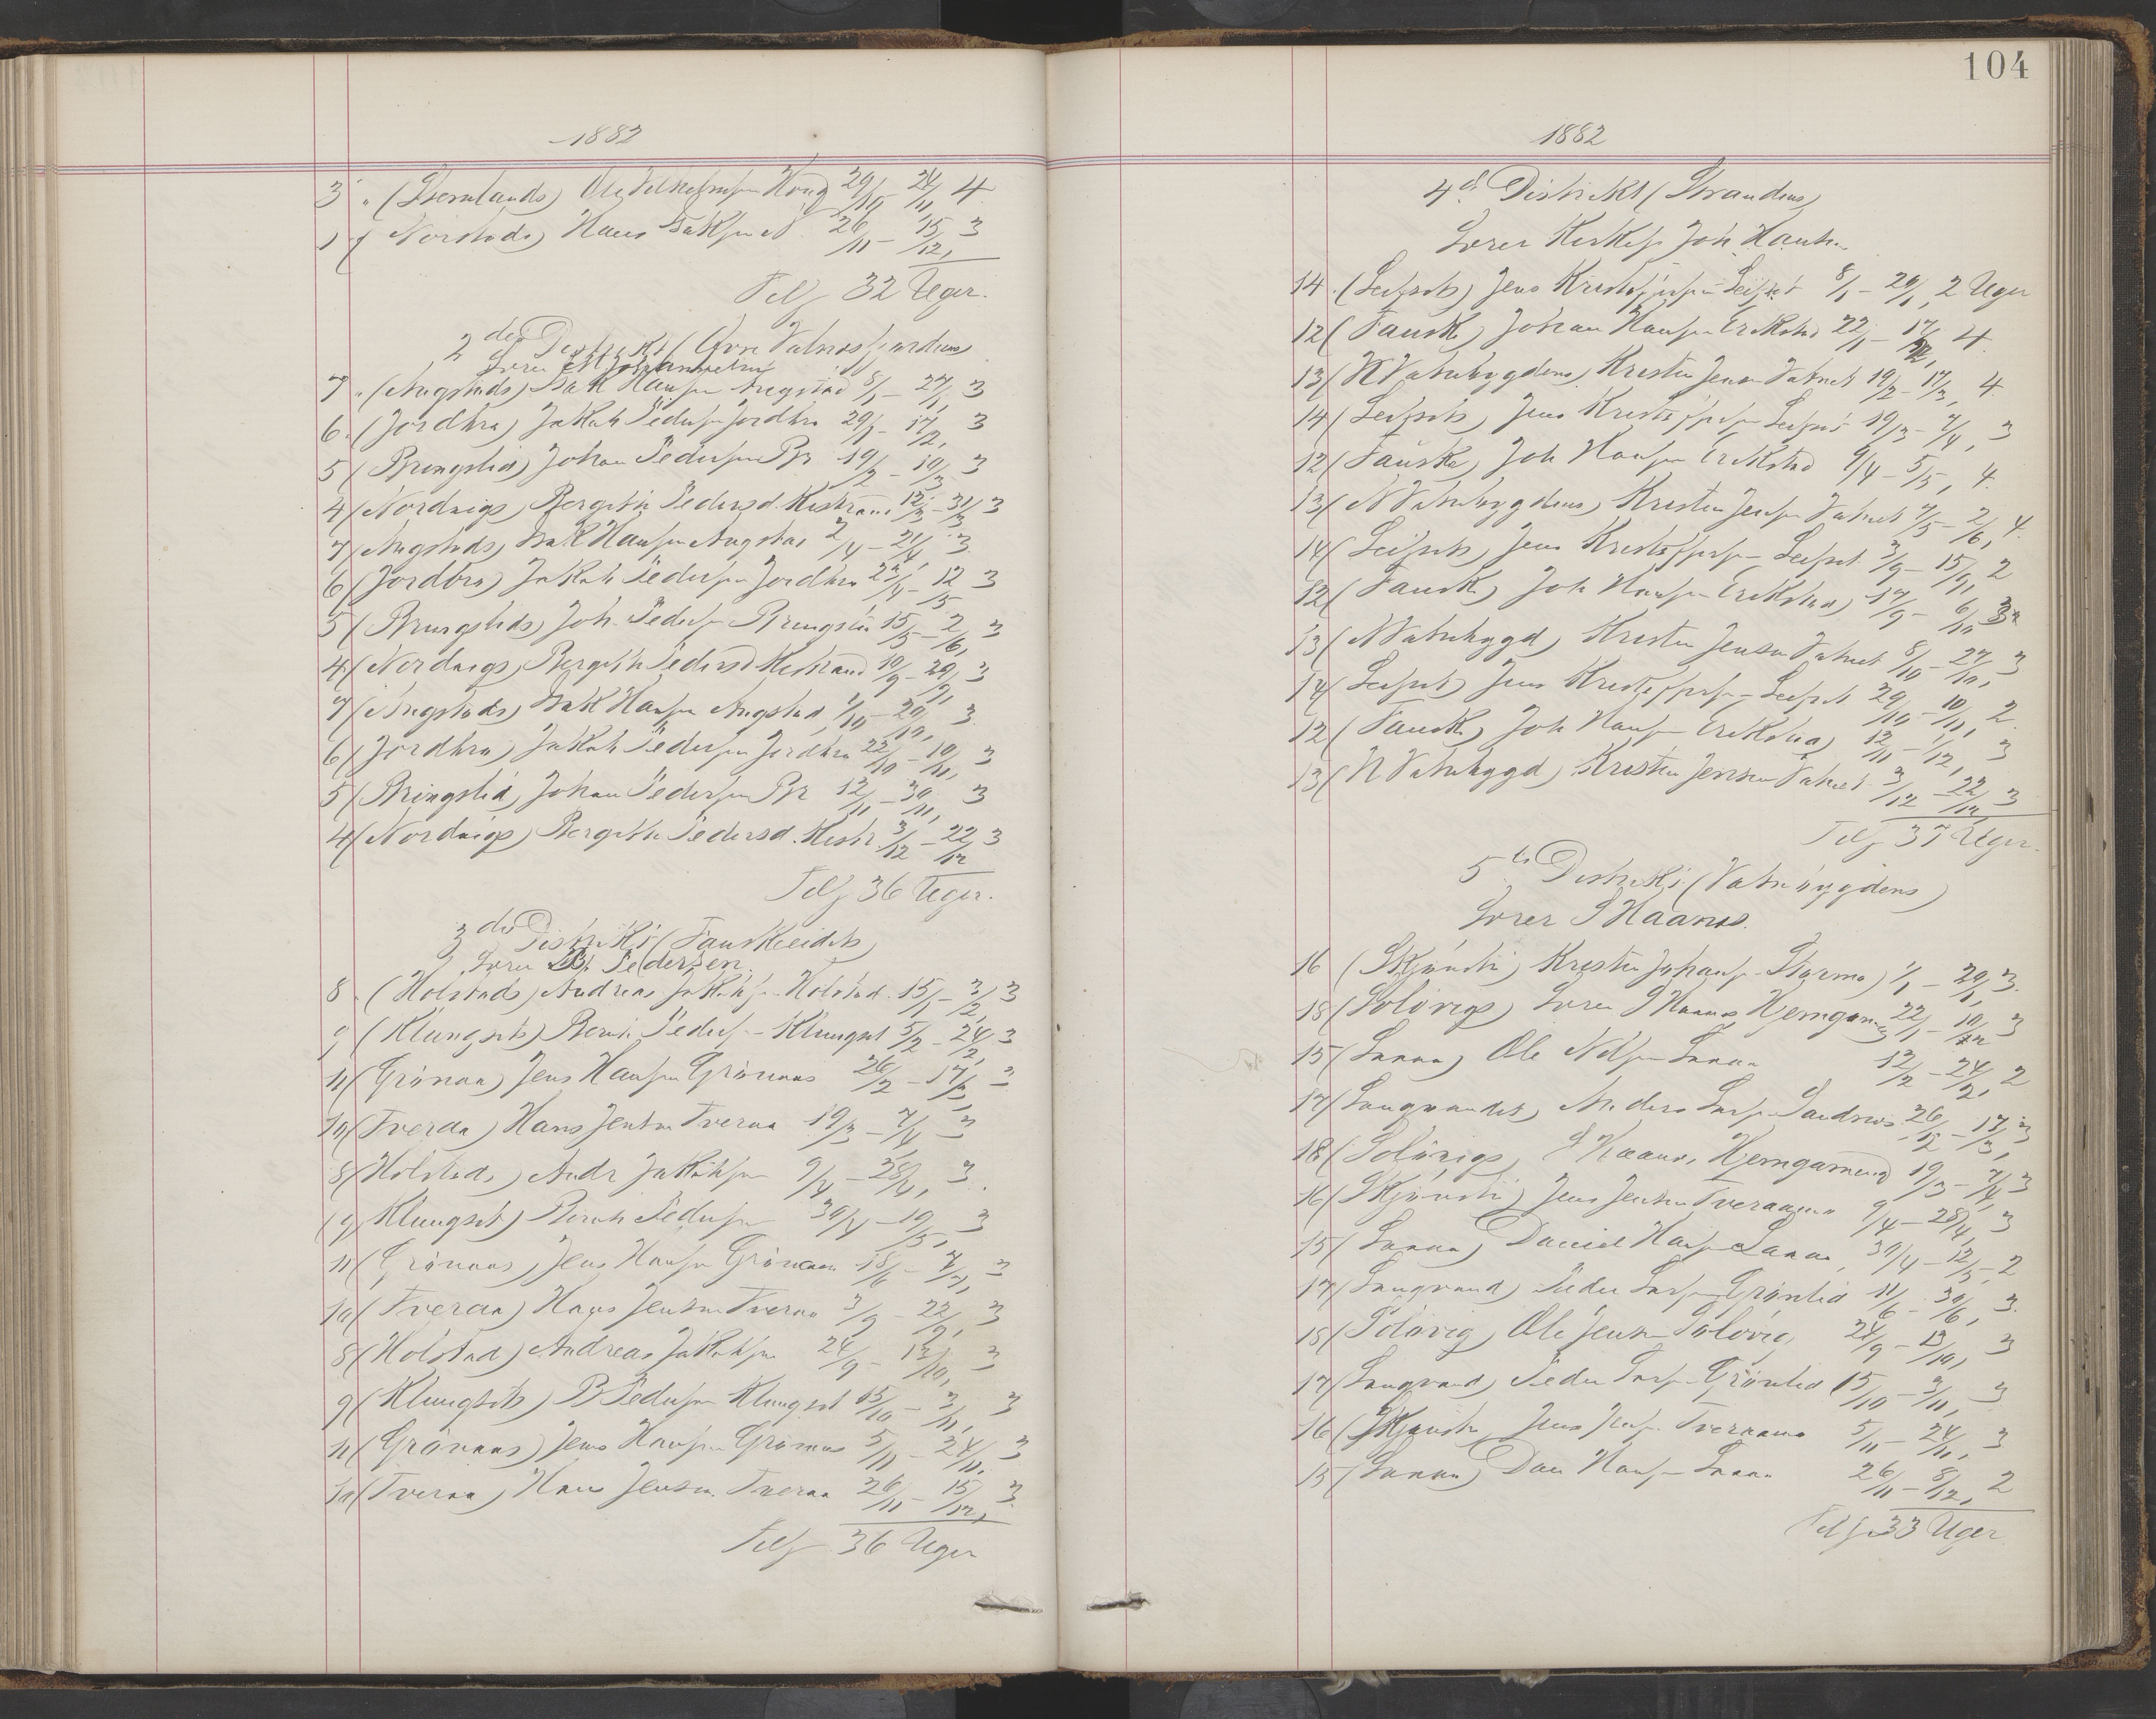 1882
3 " (Dverslands) Ole Vilhelmsen Haug 29/10 - 24/11 4
1 ( Norstads) Hans Isaksen N. 26/11 - 15/12, 3
Tils 32 Uger.
2det Distrikt (Øvre Valnesfjordens)
Lærer M Johannesen
7 " (Angstads) Isak Hansen Angstad 8/1 - 27/1 3
6 " (Jordbro) Jakob Pedersen Jordbro 29/1 - 17/2, 3
5 ( Bringslid) Johan Pedersen Br 19/2 - 10/3 3
4 (Nordvigs) Bergitte Pedersd. Kistrand 12/3 - 31/3 3
7 (Angstads) Isak Hansen Angstad 2/4 - 21/4 3
6 (Jordbro) Jakob Pedersen Jordbro 23/4 - 12/5 3
5 ( Bringslids) Joh. Peders. Bringslid 15/5 - 2/6, 3
4 (Nordvigs) Bergitte Pedersd Kistrand 10/9 - 29/9, 3
7 (Angstads) Isak Hansen Angstad 1/10 - 20/10, 3
6 (Jordbro) Jakob Pedersen Jordbro 22/10 - 10/11, 3
5 (Bringslid) Johan Pedersen Br 12/11 - 30/11, 3
4 (Nordvigs) Bergitte Pedersd. Kistr. 3/12 - 22/12 3
Tils 36 Uger.
3die Distrikt (Fauskeeidets)
Lærer B. Pedersen.
8 " (Holstads) Andreas Jakobs. Holstad. 15/1 - 3/2, 3
9 (Klungsets) Bernt Peders. Klungset 5/2 - 24/2, 3
11 (Grønaas) Jens Hansen Grønaas 26/2 - 17/3, 3
10 (Tveraa) Hans Jensen Tveraa 19/3 - 7/4 3
8 (Holstads) Andr Jakobsen 9/4 - 28/4, 3.
(9 Klungset) Bernt Pedersen 30/4 - 19/5, 3
11 ( Grønaas) Jens Hansen Grønaas 18/6 - 7/7, 3
10 ( Tveraa) Hans Jensen Tveraa 3/9 - 22/9, 3
8 (Holstad) Andreas Jakobsen 24/9 - 13/10, 3
9 ( Klungsets) B Pedersen Klungset 15/10 - 3/11, 3
11 (Grønaas) Jens Hansen Grønaas 5/11 - 24/11, 3
10 (Tveraa) Hans Jensen Tveraa 26/11 - 15/12, 3.
Tils 36 Uger
104
1882
4de Distrikt (Strandens)
Lærer Joh. Hansen
14 . (Leifsets) Jens Kristoffersen Leifset 8/1 - 20/1, 2 Uger
12 ( Fauske) Johan Hansen Erikstad 22/1 - 17/2, 4.
13 (N Vatnbygdens) Kristen Jensen Vatnet 19/2 - 17/3, 4.
14 (Leifsets) Jens Kristoffersen Leifset 19/3 - 7/4, 3
12 (Fauske) Joh Hansen Erikstad 9/4 - 5/5, 4.
13 (N Vatnbygdens) Kristen Jensen Vatnet 7/5 - 2/6, 4.
14 (Leifsets) Jens Kristoffersen Leifset 3/9 - 15/9, 2
12 (Fauske) Joh Hansen Erikstad) 17/9 - 6/10 3
13 (N Vatnbygd) Kristen Jensen Vatnet 8/10 - 27/10, 3
14 (Leifset) Jens Kristoffersen Leifset 29/10 - 10/11, 2.
12 ( Fauske) Joh Hansen Erikstad) 12/11 - 1/12, 3
13 (N Vatnbygd) Kristen Jensen Vatnet 3/12 - 22/12, 3
Tils 37 Uger.
5te Distrikt (Vatnbygdens)
Lærer S Haanes.
16 (Skjønsti) Kristen Johans. Stormo) 1/1 - 20/1, 3.
18 (Solvigs) Lærer S Haanes Hjemgamm 22/1 - 10/2 3
15 (Lanaa) Ole Nilsen Lanaa 12/2 - 24/2, 2
17 (Langvandet) Anders Lars. Sandnes 26/2 - 17/3, 3
18 (Solvigs) S Haanes, Hjemgammen 19/3 - 7/4, 3
16 (Skjønsti) Jens Jensen Tveraamo 9/4 - 28/4, 3
15 (Lanaa) Daniel Hans. Lanaa, 30/4 - 12/5, 2
17 (Langvand) Peder Lars. Grønlid 11/6 - 30/6, 3.
18 (Solvig) Ole Jensen Solvig, 24/9 - 13/10, 3
17 (Langvand) Peder Lars. Grønlid 15/10 - 3/11, 3
16 (Skjønsti) Jens Jens. Tveraamo 5/11 - 24/11, 3
15 (Lanaa) Dan Hans. Lanaa 26/11 - 8/12, 2
Tils 33 Uger